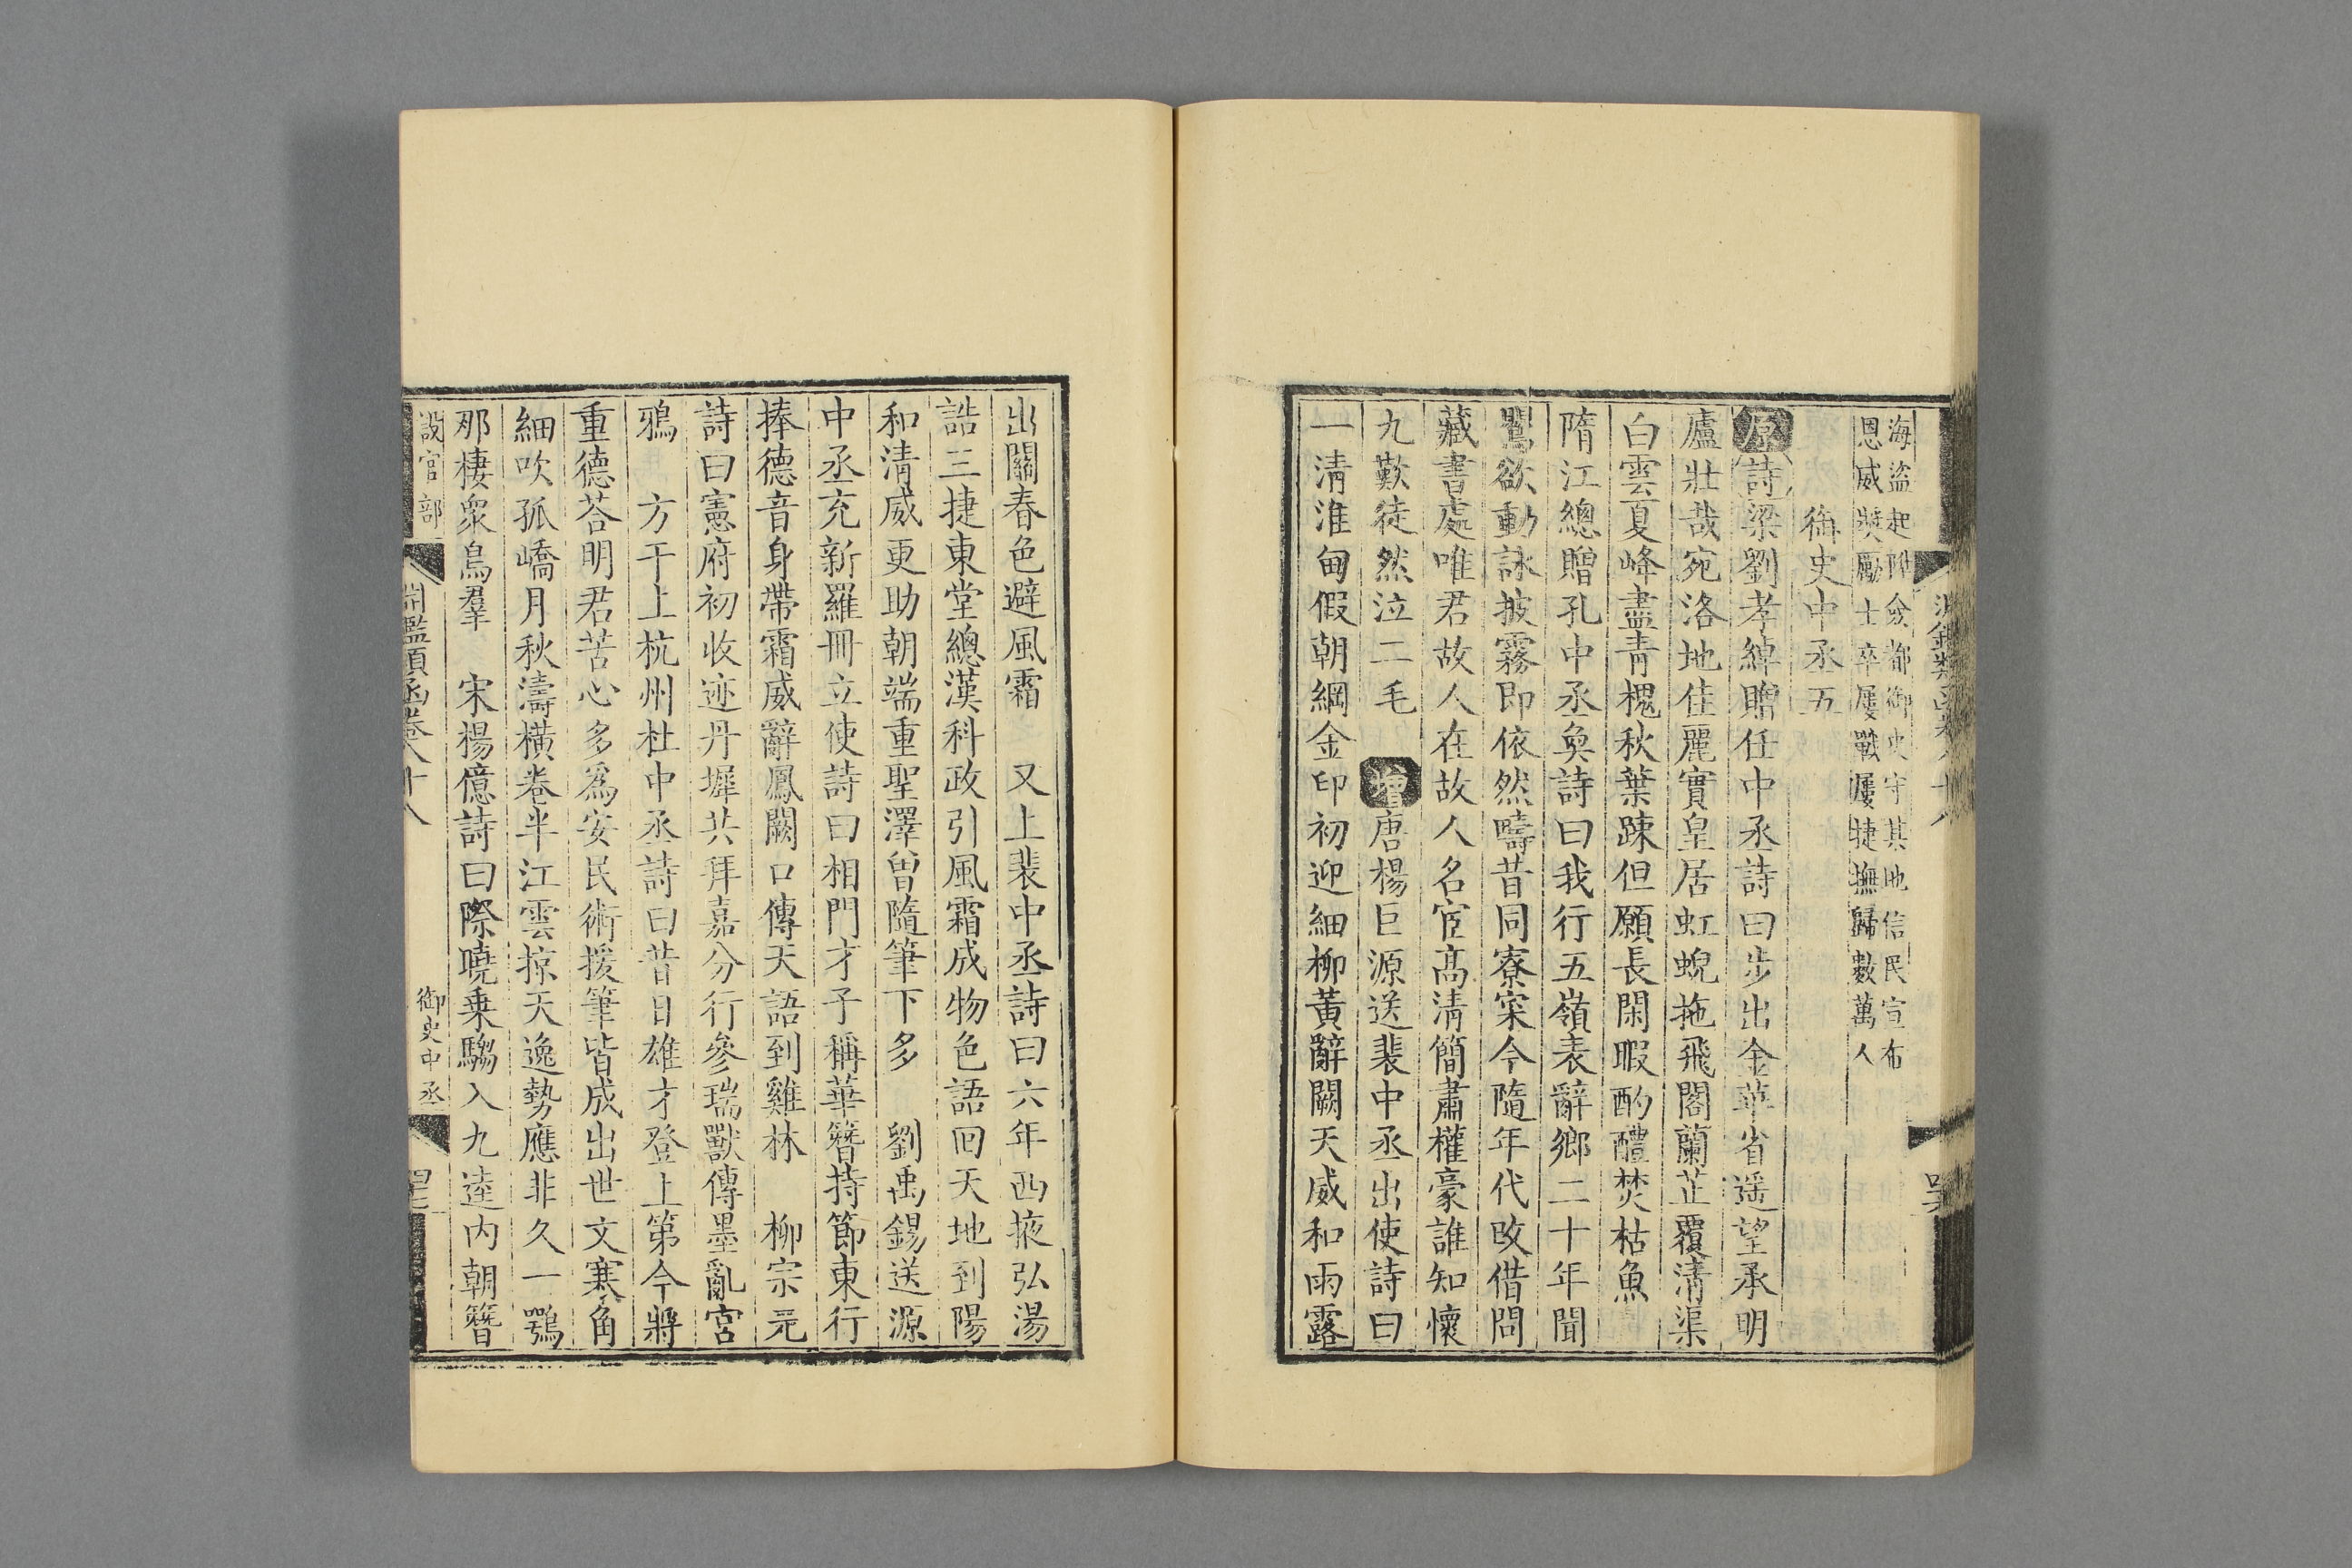 海盜起 僉都御史守其地信民宣布
恩威奬勵士卒屢戰屢捷撫歸數萬人
御史中丞五
原詩梁劉孝綽贈任中丞詩曰步出金華省遥望承明
廬壯哉宛洛地佳麗實皇居虹蜺拖飛閣蘭芷覆清渠
白雲夏峰盡青槐秋葉踈但願長閑暇酌醴焚枯魚
隋江總贈孔中丞奐詩曰我行五嶺表辭鄉二十年聞
鸎欲動詠披霧即依然疇昔同寮寀今隨年代改借問
藏書處唯君故人在故人名宦高清簡肅權豪誰知懷
九歎徒然泣二毛 增唐楊巨源送裴中丞出使詩曰
一清淮甸假朝綱金印初迎細柳黃辭闕天威和雨露
出關春色避風霜 又上裴中丞詩曰六年西掖弘湯
誥三捷東堂總漢科政引風霜成物色語回天地到陽
和清威更助朝端重聖澤曾隨筆下多 劉禹錫送源
中丞充新羅冊立使詩曰相門才子稱華簪持節東行
捧德音身帶霜威辭鳳闕口傳天語到雞林 柳宗元
詩曰憲府初收迹丹墀共拜嘉分行參瑞獸傳墨亂宮
鴉 方干上杭州杜中丞詩曰昔日雄才登上第今將
重德荅明君苦心多爲安民術援筆皆成出世文寒角
細吹孤嶠月秋濤橫卷半江雲掠天逸勢應非久一鶚
那棲衆鳥羣 宋楊億詩曰際曉乗騶入九逵内朝簪
設官部 淵鑑類函卷八十八 御史中丞